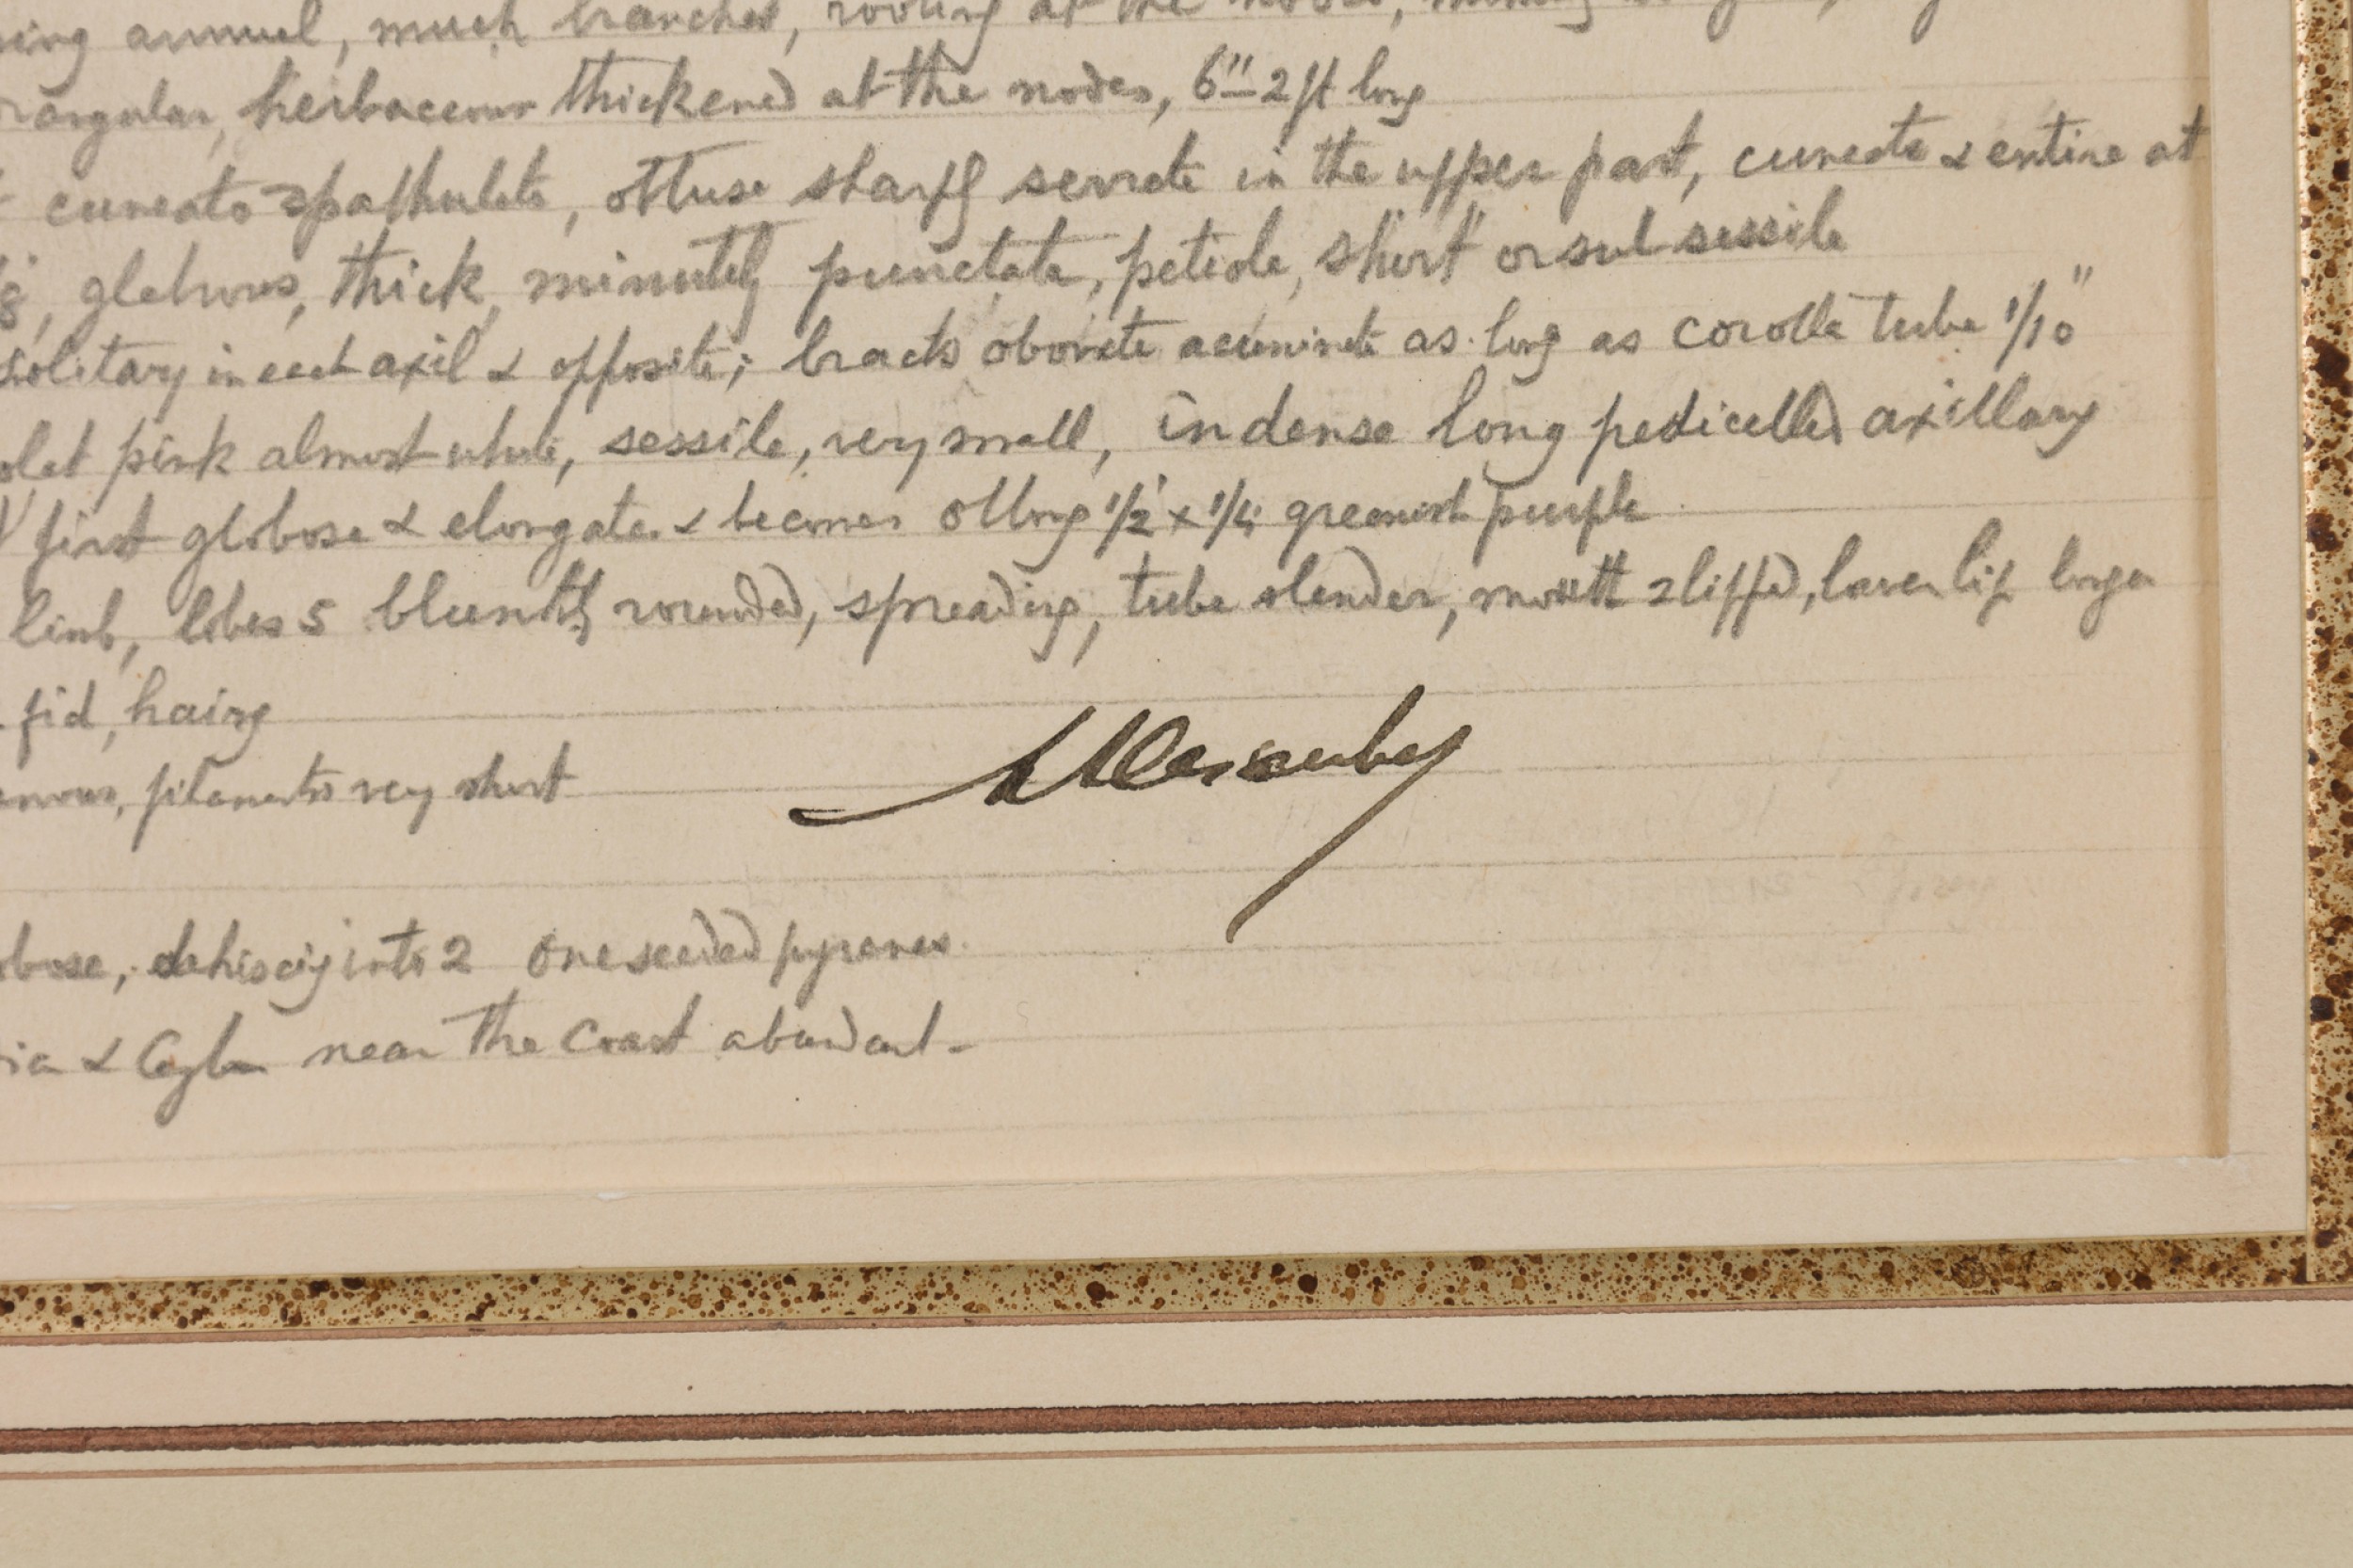 annual, much branched, rooting at the nodes,
herbaceous thickened at the nodes, 6"-2 ft long
cuneate spathulate, obtuse sharply serrate in the upper part, cuneate & entire at
glabrous, thick, minutely punctate, petiole, short or subsessile
solitary in each axil & opposite; bracts obovate acuminate as long as corolla tube 1/10"
pink almost white, sessile, very small, in dense long pedicelled axillary
first globose & elongates & becomes oblong 1/2 x 1/4 greenish purple
limb, lobes 5 bluntly rounded, spreading, tube slender, mouth 2 lipped, lower lip longer
fid, hairy
filaments very short
dehiscing into 2 one seeded pyrenes.
& Ceylon near the coast abundant -